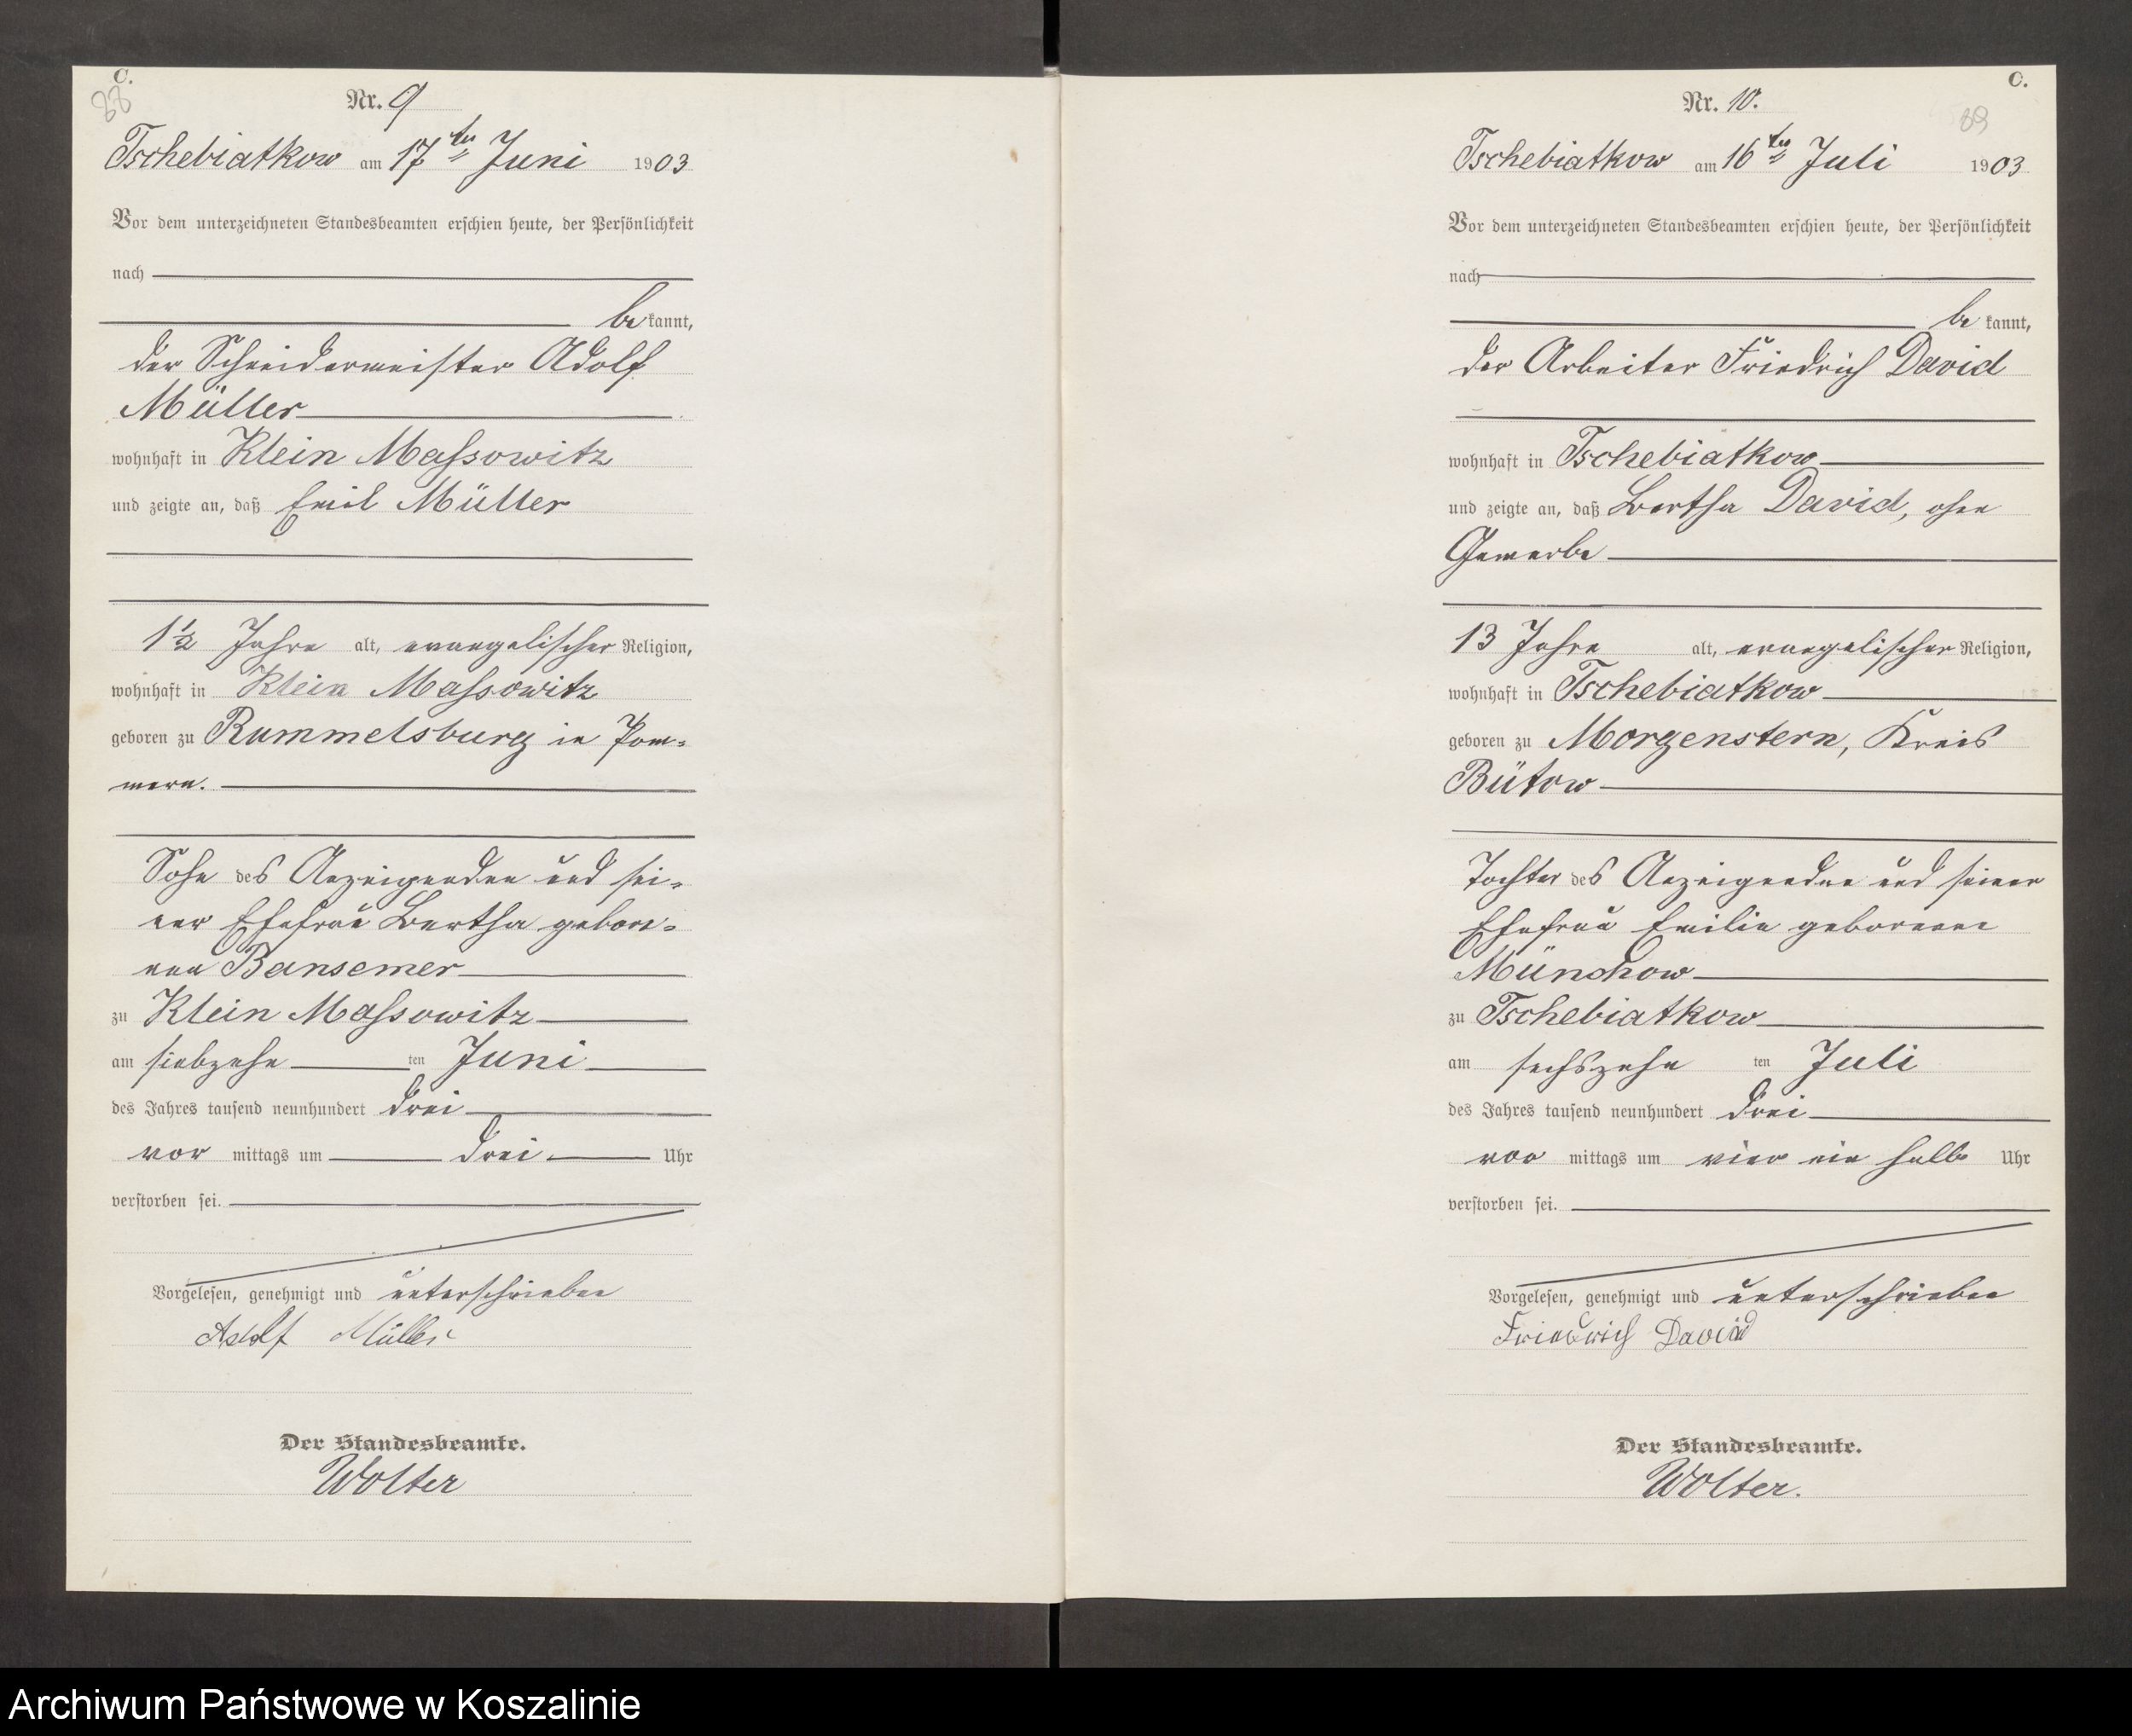 C.
88
Nr. 9
Tschebiatkow am 17ten Juni 1903
Vor dem unterzeichneten Standesbeamten erschien heute, der Persönlichkeit
nach
be kannt,
der Schneidermeister Adolf
Müller
wohnhaft in Klein Massowitz
und zeigte an, daß Emil Müller
1½ Jahre alt, evangelischer Religion,
wohnhaft in Klein Massowitz
geboren zu Rummelsburg in Pom=
mern.
Sohn des Anzeigenden und sei=
ner Ehefrau Bertha gebore=
nen Bansemer
zu Klein Massowitz
am siebzehn ten Juni
des Jahres tausend neunhundert drei
vor mittags um drei Uhr
verstorben sei.
Vorgelesen, genehmigt und unterschrieben
Adolf Müller
Der Standesbeamte.
Wolter
C.
89
Nr. 10.
Tschebiatkow am 16ten Juli 1903
Vor dem unterzeichneten Standesbeamten erschien heute, der Persönlichkeit
nach
be kannt,
der Arbeiter Friedrich David
wohnhaft in Tschebiatkow
und zeigte an, daß Bertha David, ohne
Gewerbe
13 Jahre alt, evangelischer Religion,
wohnhaft in Tschebiatkow
geboren zu Morgenstern, Kreis
Bütow
Tochter des Anzeigenden und seiner
Ehefrau Emilie geborenen
Münchow
zu Tschebiatkow
am sechszehn ten Juli
des Jahres tausend neunhundert drei
vor mittags um vier ein halb Uhr
verstorben sei.
Vorgelesen, genehmigt und unterschrieben
Friedrich David
Der Standesbeamte.
Wolter.
Archiwum Państwowe w Koszalinie